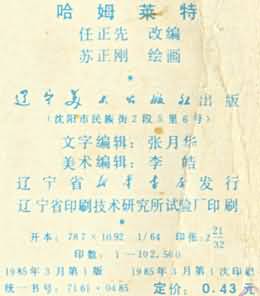 哈姆莱特
任正先 改编
苏正刚 绘画
辽宁美术出版社出版
(沈阳市民族街2段5里6号)
文字编辑：张月华
美术编辑：李皓
辽宁省新华书店发行
辽宁省印刷技术研究所试验厂印刷
开本：787×1092 1/64 印张：2 21/32
印数：1—102,560
1985年3月第1版 1985年3月第1次印刷
统一书号：7161·0485 定价：0.43元